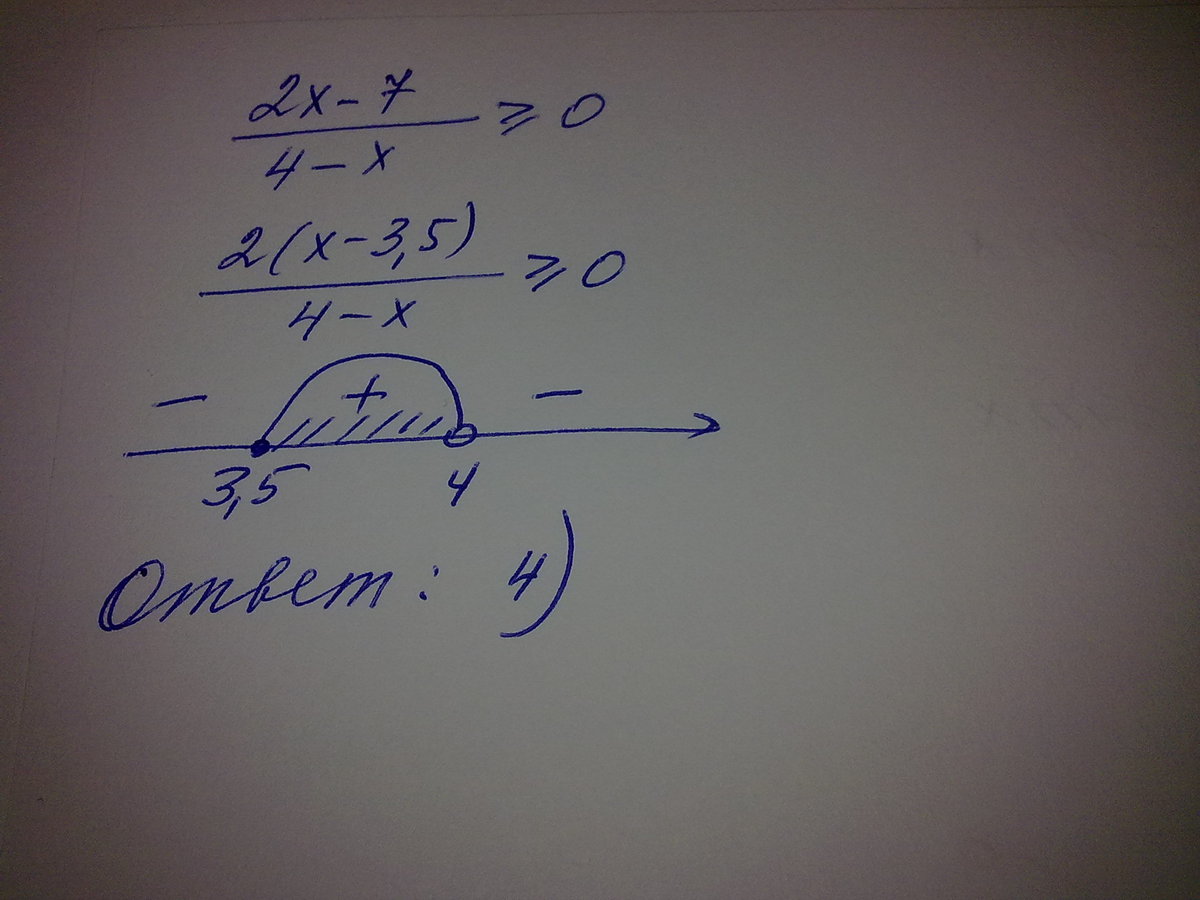 2x-7
4-x
≥ 0
2(x-3,5)
4-x
≥ 0
- + -
3,5 4
Ответ: 4)